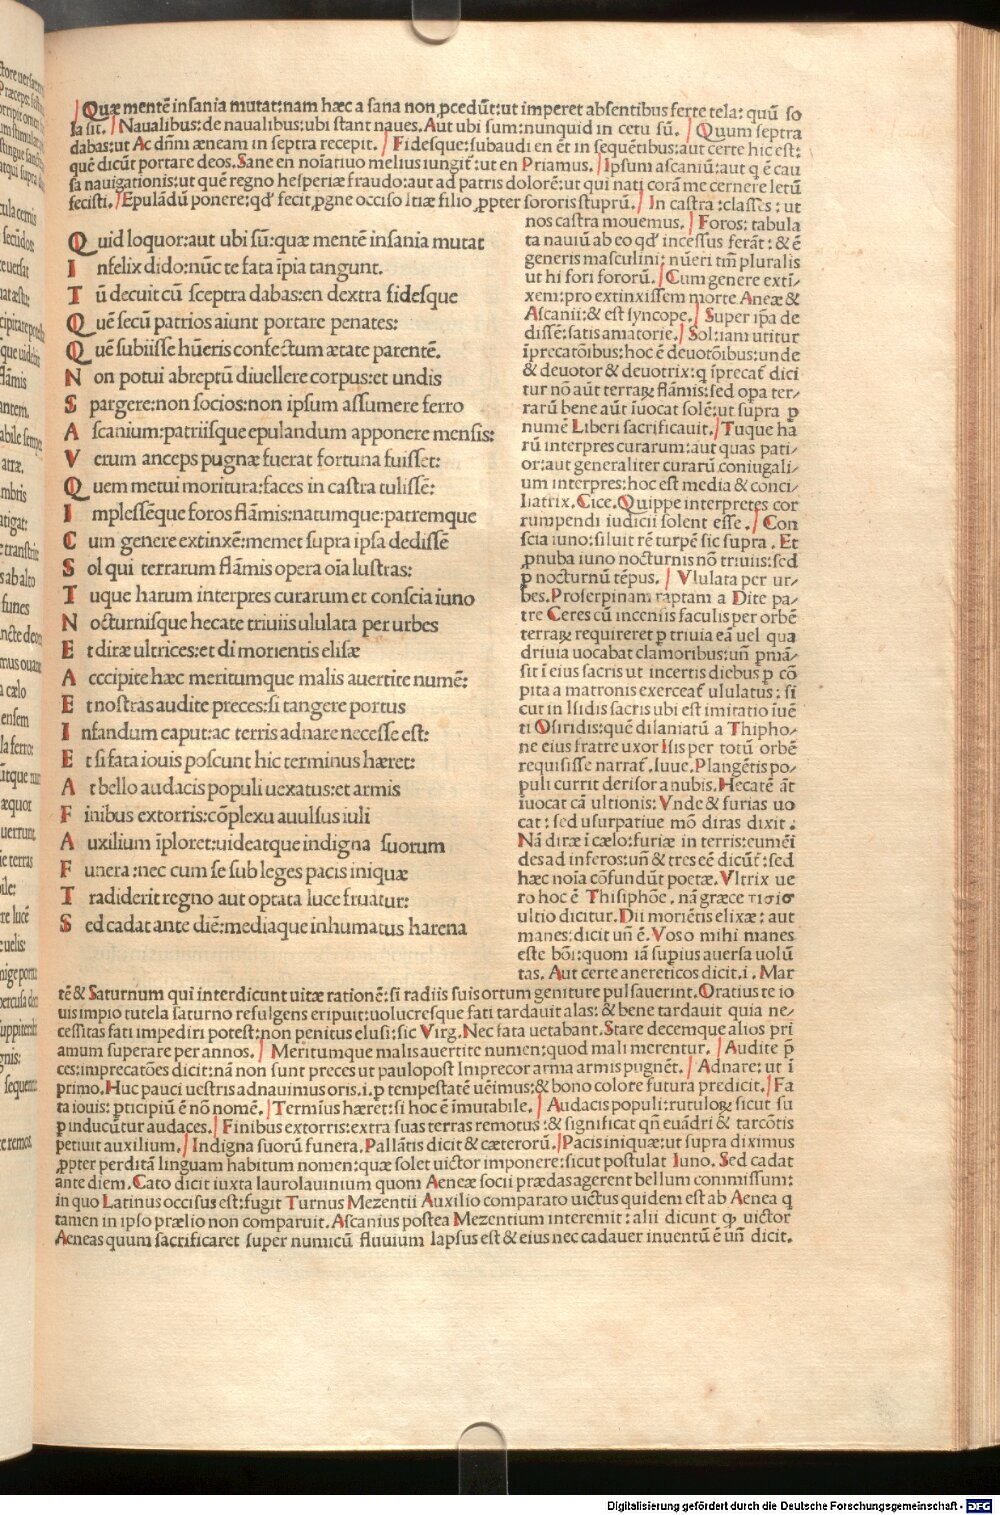 Quæ mentē insania mutat: nam hæc a sana non ꝓcedūt: ut imperet absentibus ferte tela: quū so
la sit. Naualibus: de naualibus: ubi stant naues. Aut ubi sum: nunquid in cetu sū. Quum septra
dabas: ut Ac dn̄m æneam in septra recepit. Fidesque: subaudi en ēt in sequētibus: aut certe hic est:
quē dicūt portare deos. Sane en noīatiuo melius iungit̄: ut en Priamus. Ipsum ascaniū: aut q̄ ē cau
sa nauigationis: ut quē regno hesperiæ fraudo: aut ad patris dolorē: ut qui nati corā me cernere letū
fecisti. Epulādū ponere: qd' fecit ꝓgne occiso Itiæ filio ꝓpter sororis stuprū. In castra: classes: ut
Quid loquor: aut ubi sū: quæ mentē insania mutat
Infelix dido: nūc te fata īpia tangunt.
Tū decuit cū sceptra dabas: en dextra fidesque
Quē secū patrios aiunt portare penates:
Quē subiisse hūeris confectum ætate parentē.
Non potui abreptū diuellere corpus: et undis
Spargere: non socios: non ipsum assumere ferro
Ascanium: patriisque epulandum apponere mensis:
Verum anceps pugnæ fuerat fortuna fuisset:
Quem metui moritura: faces in castra tulissē:
Implessēque foros flāmis: natumque: patremque
Cum genere extinxē: memet supra ipsa dedissē
Sol qui terrarum flāmis opera oīa lustras:
Tuque harum interpres curarum et conscia iuno
Nocturnisque hecate triuiis ululata per urbes
Et diræ ultrices: et di morientis elisæ
Acccipite hæc meritumque malis auertite numē:
Et nostras audite preces: si tangere portus
Infandum caput: ac terris adnare necesse est:
Et si fata iouis poscunt hic terminus hæret:
At bello audacis populi uexatus: et armis
Finibus extorris: cōplexu auulsus iuli
Auxilium īploret: uideatque indigna suorum
Funera: nec cum se sub leges pacis iniquæ
Tradiderit regno aut optata luce fruatur:
Sed cadat ante diē: mediaque inhumatus harena
nos castra mouemus. Foros: tabula
ta nauiū ab eo qd' incessus ferāt: & ē
generis masculini: nūeri tm̄ pluralis
ut hi fori fororū. Cum genere exti/
xem: pro extinxissem morte Aneæ &
Ascanii: & est syncope. Super ip̄a de
dissē: satis amatorie. Sol: iam utitur
īprecatōibus: hoc ē deuotōibus: unde
& deuotor & deuotrix: q īprecat̄ dici
tur nō aūt terraꝝ flāmis: sed opa ter/
rarū bene aūt iuocat solē: ut supra ꝑ
numē Liberi sacrificauit. Tuque hā
rū interpres curarum: aut quas pati/
or: aut generaliter curarū coniugali/
um interpres: hoc est media & conci/
liatrix. Cice. Quippe interpretes cor
rumpendi iudicii solent esse. Con
scia iuno: siluit rē turpē sic supra. Et
ꝓnuba iuno nocturnis nō triuiis: sed
ꝑ nocturnū tēpus. Vlulata per ur/
bes. Proserpinam raptam a Dite pa/
tre Ceres cū incensis faculis per orbē
terraꝝ requireret ꝑ triuia eā uel qua
driuia uocabat clamoribus: un̄ pmā/
sit ī eius sacris ut incertis diebus ꝑ cō
pita a matronis exerceat̄ ululatus: si
cut in Isidis sacris ubi est imitatio īuē
ti Osiridis: quē dilaniatū a Thipho/
ne eius fratre uxor Isis per totū orbē
requisisse narrat̄. Iuue. Plangētis po/
puli currit derisor anubis. Hecatē āt
īuocat cā ultionis: Vnde & furias uo
cat: sed usurpatiue mō diras dixit:
Nā diræ ī cælo: furiæ in terris: eumēi
des ad inferos: un̄ & tres eē dicūt̄: sed
hæc noīa cōfundūt poetæ. Vltrix ue
ro hoc ē Thisiphōe. nā græce τισισ
ultio dicitur. Dii moriētis elixæ: aut
manes: dicit un̄ ē. Vos o mihi manes
este bōi: quom iā suꝑius auersa uolū
tas. Aut certe anereticos dicit. i. Mar
tē & Saturnum qui interdicunt uitæ rationē: si radiis suis ortum geniture pulsauerint. Oratius te io
uis impio tutela saturno refulgens eripuit: uolucresque fati tardauit alas: & bene tardauit quia ne/
cessitas fati impediri potest: non penitus elusi: sic Virg. Nec fata uetabant. Stare decemque alios pri
amum superare per annos. Meritumque malis auertite numen: quod mali merentur. Audite p̄
ces: imprecatōes dicit: nā non sunt preces ut paulo post Imprecor arma armis pugnēt. Adnare: ut ī
primo. Huc pauci uestris adnauimus oris. i. ꝑ tempestatē uēimus: & bono colore futura predicit. Fa
ta iouis: ꝑticipiū ē nō nomē. Termīus hæret: si hoc ē īmutabile. Audacis populi: rutuloꝝ sicut su
ꝑ inducūtur audaces. Finibus extorris: extra suas terras remotus: & significat qn̄ euādri & tarcōtis
petiuit auxilium. Indigna suorū funera. Pallātis dicit & cæterorū. Pacis iniquæ: ut supra diximus
ꝓpter perditā linguam habitum nomen: quæ solet uictor imponere: sicut postulat Iuno. Sed cadat
ante diem. Cato dicit iuxta laurolauinium quom Aeneæ socii prædas agerent bellum commissum:
in quo Latinus occisus est: fugit Turnus Mezentii Auxilio comparato uictus quidem est ab Aenea q
tamen in ipso prælio non comparuit. Ascanius postea Mezentium interemit: alii dicunt ꝙ uictor
Aeneas quum sacrificaret super numicū fluuium lapsus est & eius nec cadauer inuentū ē un̄ dicit.
Digitalisierung gefördert durch die Deutsche Forschungsgemeinschaft - DFG